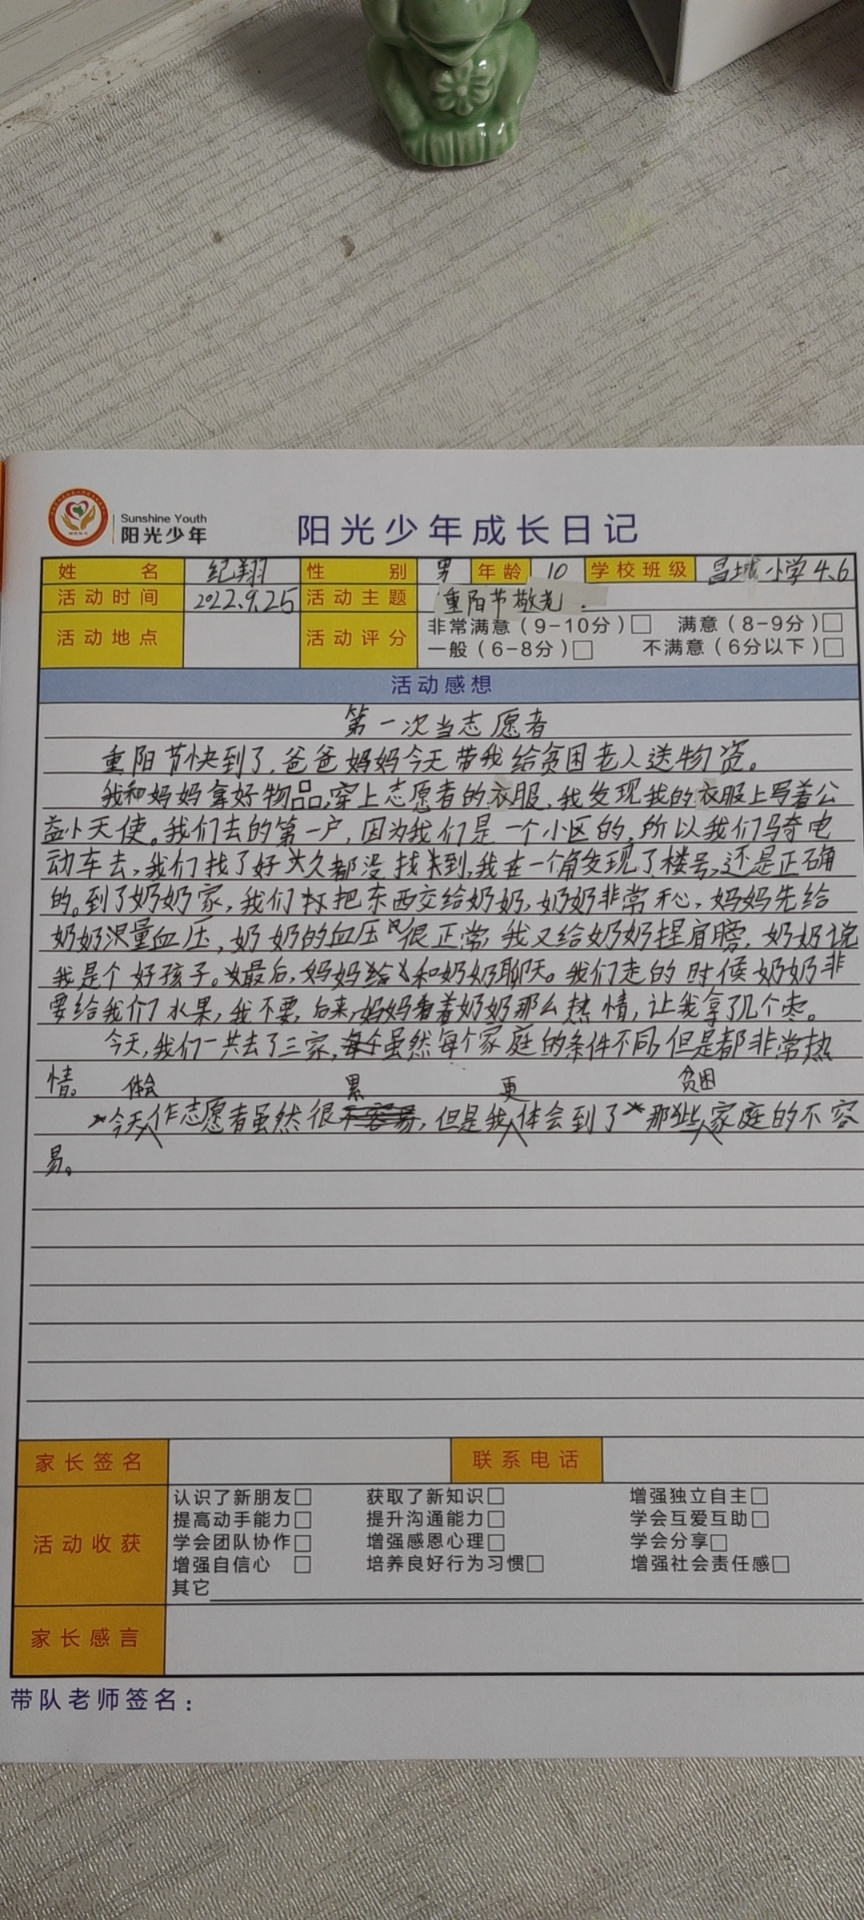 Sunshine Youth
阳光少年
阳光少年成长日记
姓名 纪翔 性别 男 年龄 10 学校班级 昌城小学4.6
活动时间 2022.9.25 活动主题 重阳节敬老.
活动地点 活动评分 非常满意(9-10分)□ 满意(8-9分)□
一般(6-8分)□ 不满意(6分以下)□
活动感想
第一次当志愿者
重阳节快到了,爸爸妈妈今天带我给贫困老人送物资。
我和妈妈拿好物品,穿上志愿者的衣服,我发现我的衣服上写着公
益小天使。我们去的第一户,因为我们是一个小区的,所以我们骑电
动车去,我们找了好久都没找到,我在一个角发现了楼号,还是正确
的。到了奶奶家,我们把东西交给奶奶,奶奶非常开心,妈妈先给
奶奶测量血压,奶奶的血压很正常,我又给奶奶捏肩膀,奶奶说
我是个好孩子。最后,妈妈和奶奶聊天。我们走的时候奶奶非
要给我们水果,我不要,后来,妈妈看着奶奶那么热情,让我拿了几个枣。
今天,我们一共去了三家,虽然每个家庭的条件不同,但是都非常热
情。 体会 累 更 贫困
今天作志愿者虽然很不容易,但是我体会到了那些家庭的不容
易。
家长签名 联系电话
活动收获
认识了新朋友□ 获取了新知识□ 增强独立自主□
提高动手能力□ 提升沟通能力□ 学会互爱互助□
学会团队协作□ 增强感恩心理□ 学会分享□
增强自信心 □ 培养良好行为习惯□ 增强社会责任感□
其它
家长感言
带队老师签名: